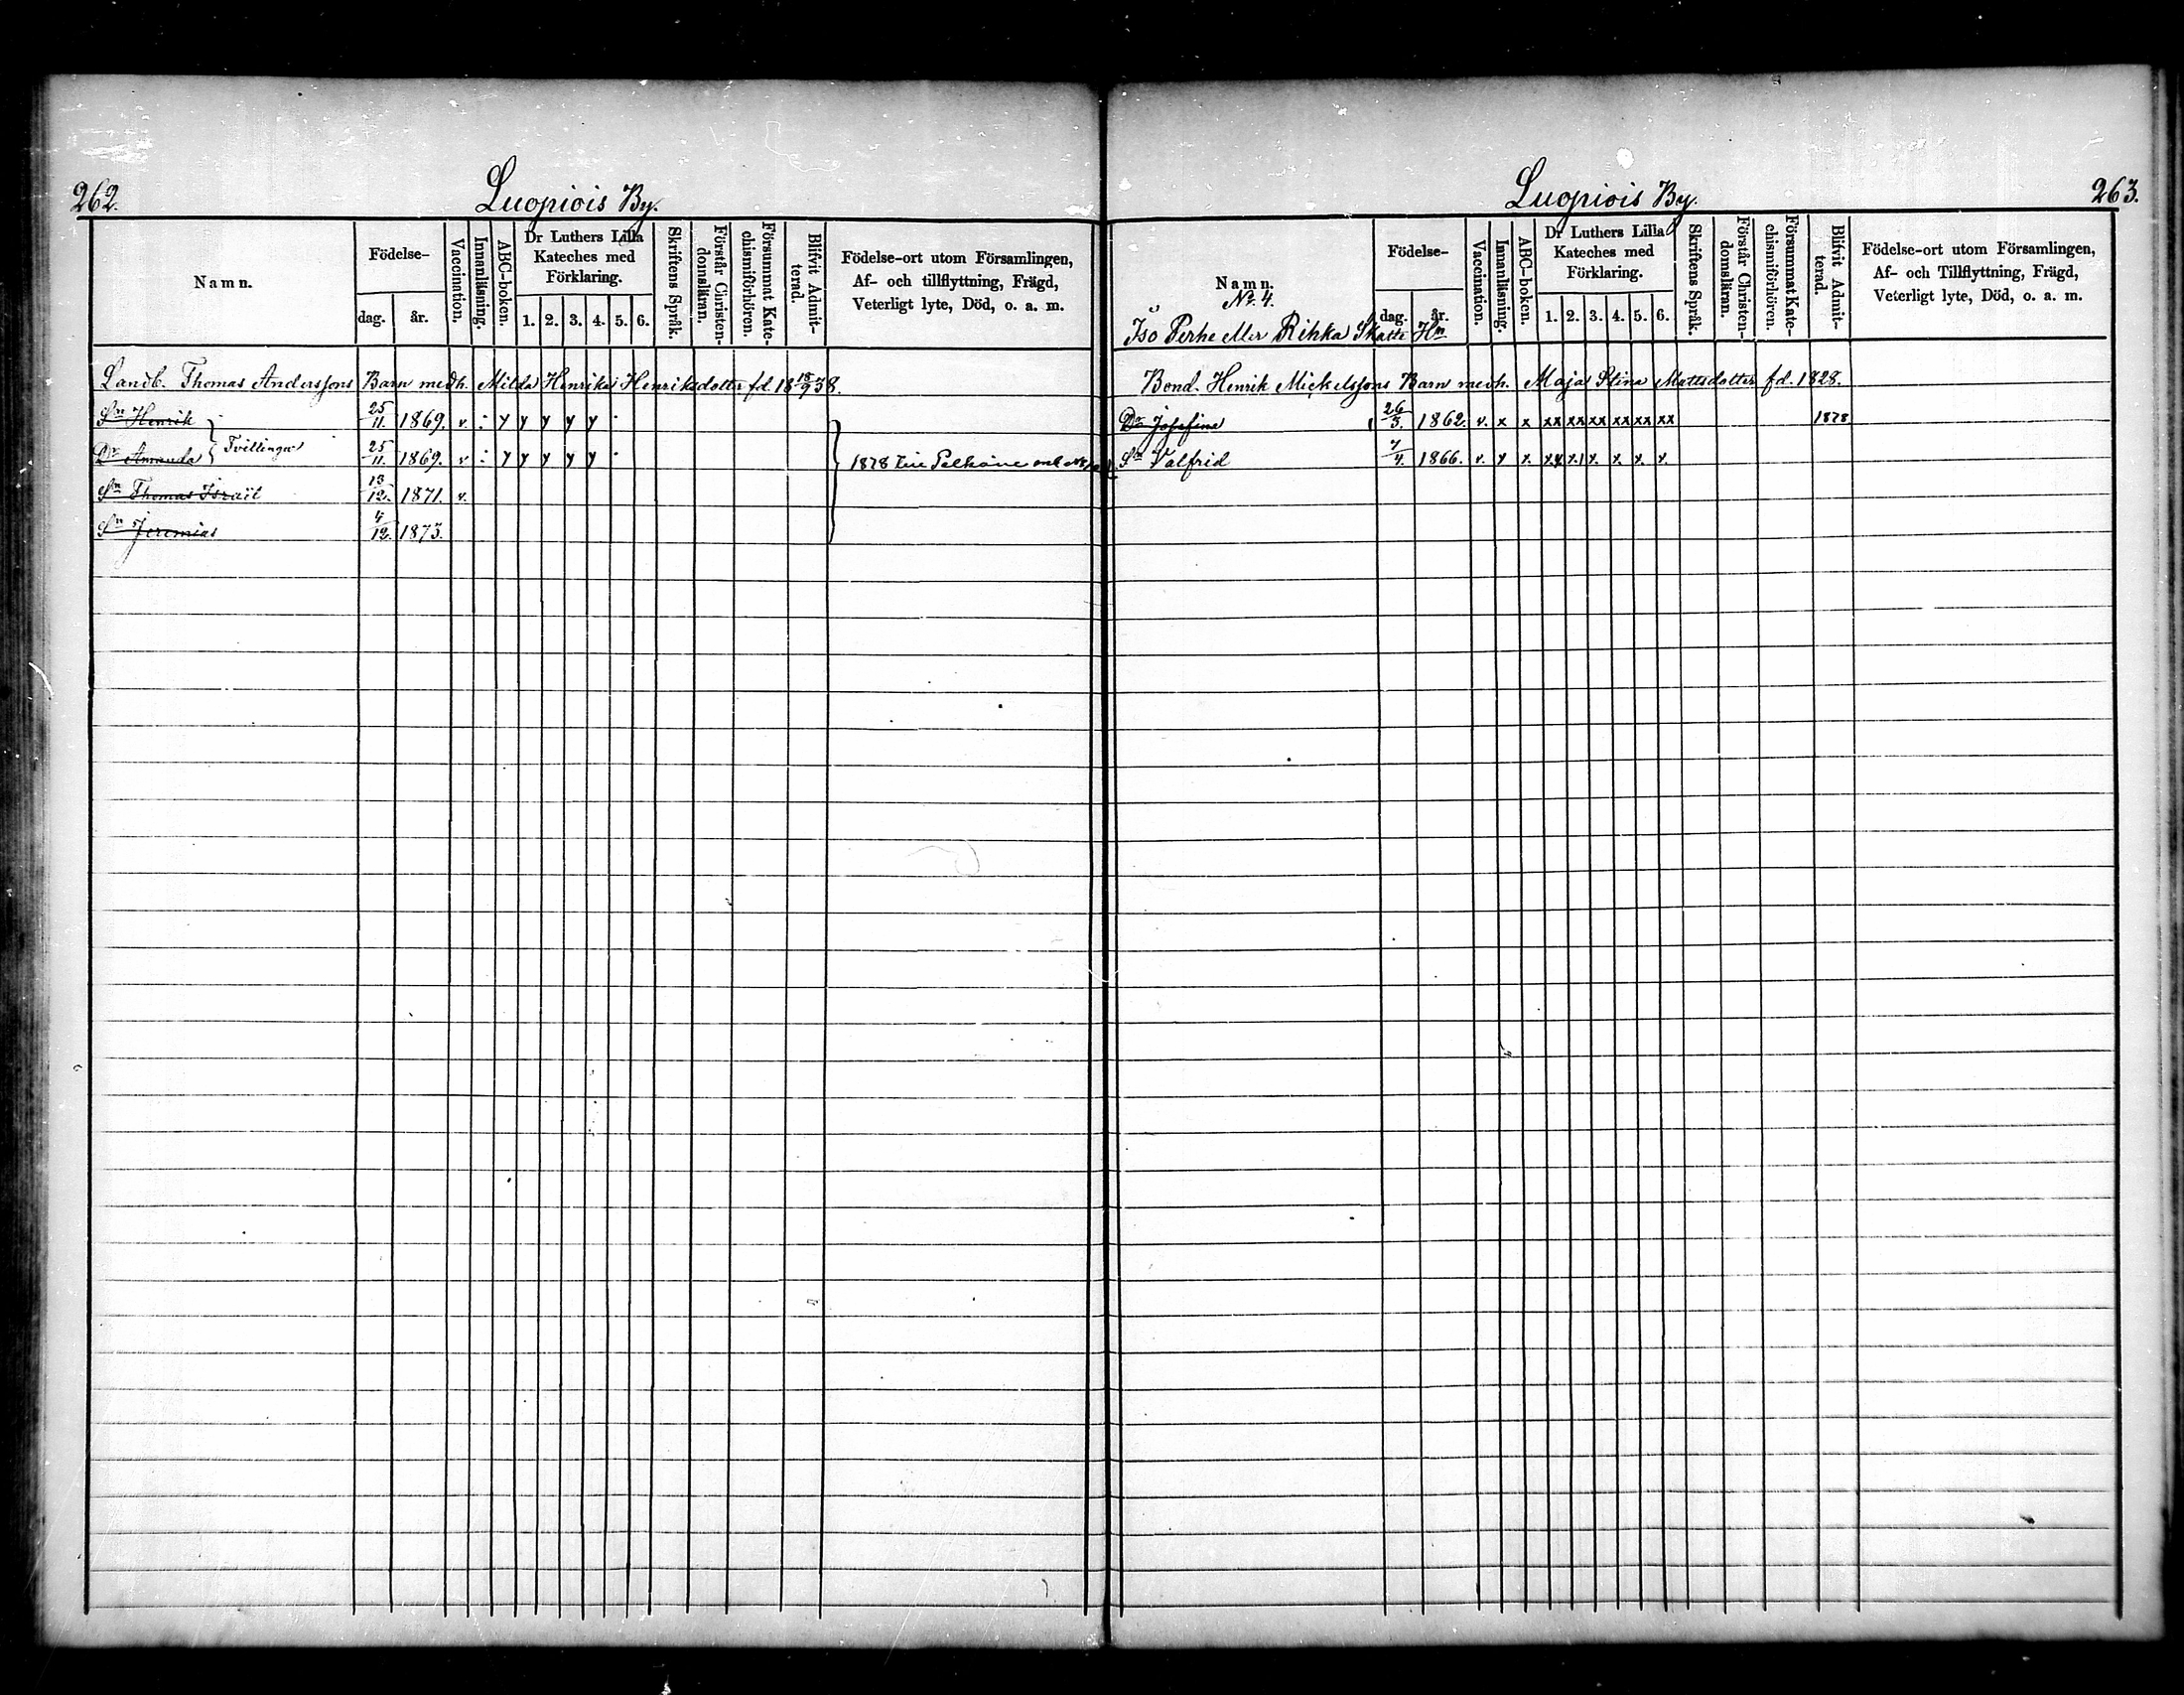 262.
Luopiois By.
Namn.
Födelse-
dag.
år.
Vaccination.
Innanläsning.
ABC-boken.
Dr Luthers Lilla Kateches med Förklaring.
1. 2. 3. 4. 5. 6.
Skriftens Språk.
Förstår Christen-domsläran.
Försummat Kate-chismiförhören.
Blifvit Admit-terad.
Födelse-ort utom Församlingen,
Af- och tillflyttning, Frägd,
Veterligt lyte, Död, o. a. m.
Landb. Thomas Anderssons Barn med h. Milda Henrika Henriksdotter fd. 18 18/9 38.
Sn Henrik 25/11. 1869. v. : y y y y y .
Tvillingar
Dr Amanda 25/11. 1869. v : y y y y y .
1878 till Pelkäne
Sn Thomas Israel 13/12. 1871. v.
Sn Jeremias 4/12. 1873.
263.
Luopiois By.
Namn.
No. 4.
Iso Perhe eller Rihka Skatte Hn
Födelse-
dag.
år.
Vaccination.
Innanläsning.
ABC-boken.
Dr Luthers Lilla Kateches med Förklaring.
1. 2. 3. 4. 5. 6.
Skriftens Språk.
Förstår Christen-domsläran.
Försummat Kate-chismiförhören.
Blifvit Admit-terad.
Födelse-ort utom Församlingen,
Af- och Tillflyttning, Frägd,
Veterligt lyte, Död, o. a. m.
Bond. Henrik Mickelssons Barn med h. Maja Stina Mattsdotter fd. 1828.
Dr Josefina 26/3. 1862. v. x x xx xx xx xx xx xx 1878
Sn Valfrid 7/4. 1866. v. y x. xx x.1 x. x. x. x.